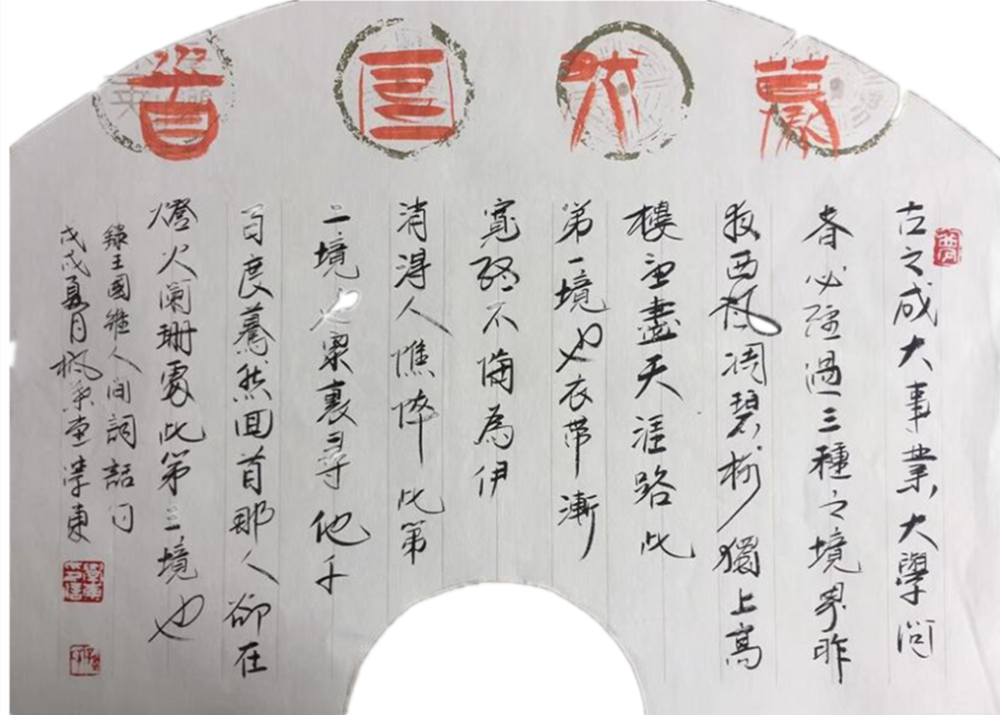 蓦然回首
古之成大事業大學问
者必經過三種之境界昨
夜西楓凋碧樹獨上高
樓望盡天涯路此
第一境也衣帶漸
寬終不悔為伊
消得人憔悴此第
二境也衆裏尋他千
百度驀然回首那人卻在
燈火闌珊處此第三境也
錄王國維人间詞話句
戊戌夏月楓葉堂學東